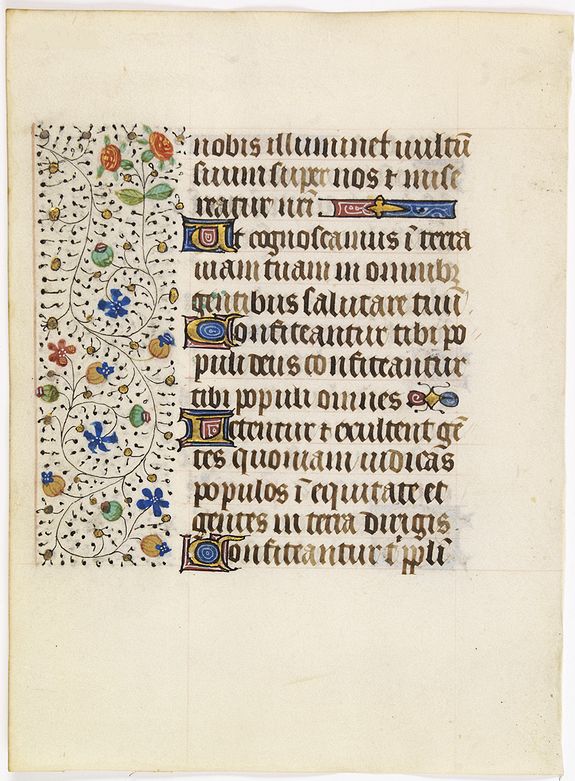 nobis illuminet uultū
suum super nos ⁊ mise
reatur nrī
Ut cognoscamus ī terra
uiam tuam in omnibꝫ
gentibus salutare tuū
Confiteantur tibi po
puli deus confiteantur
tibi populi omnes
Letentur ⁊ exultent gē
tes quoniam iudicas
populos ī equitate et
gentes in terra dirigis
Confiteantur t' ppli